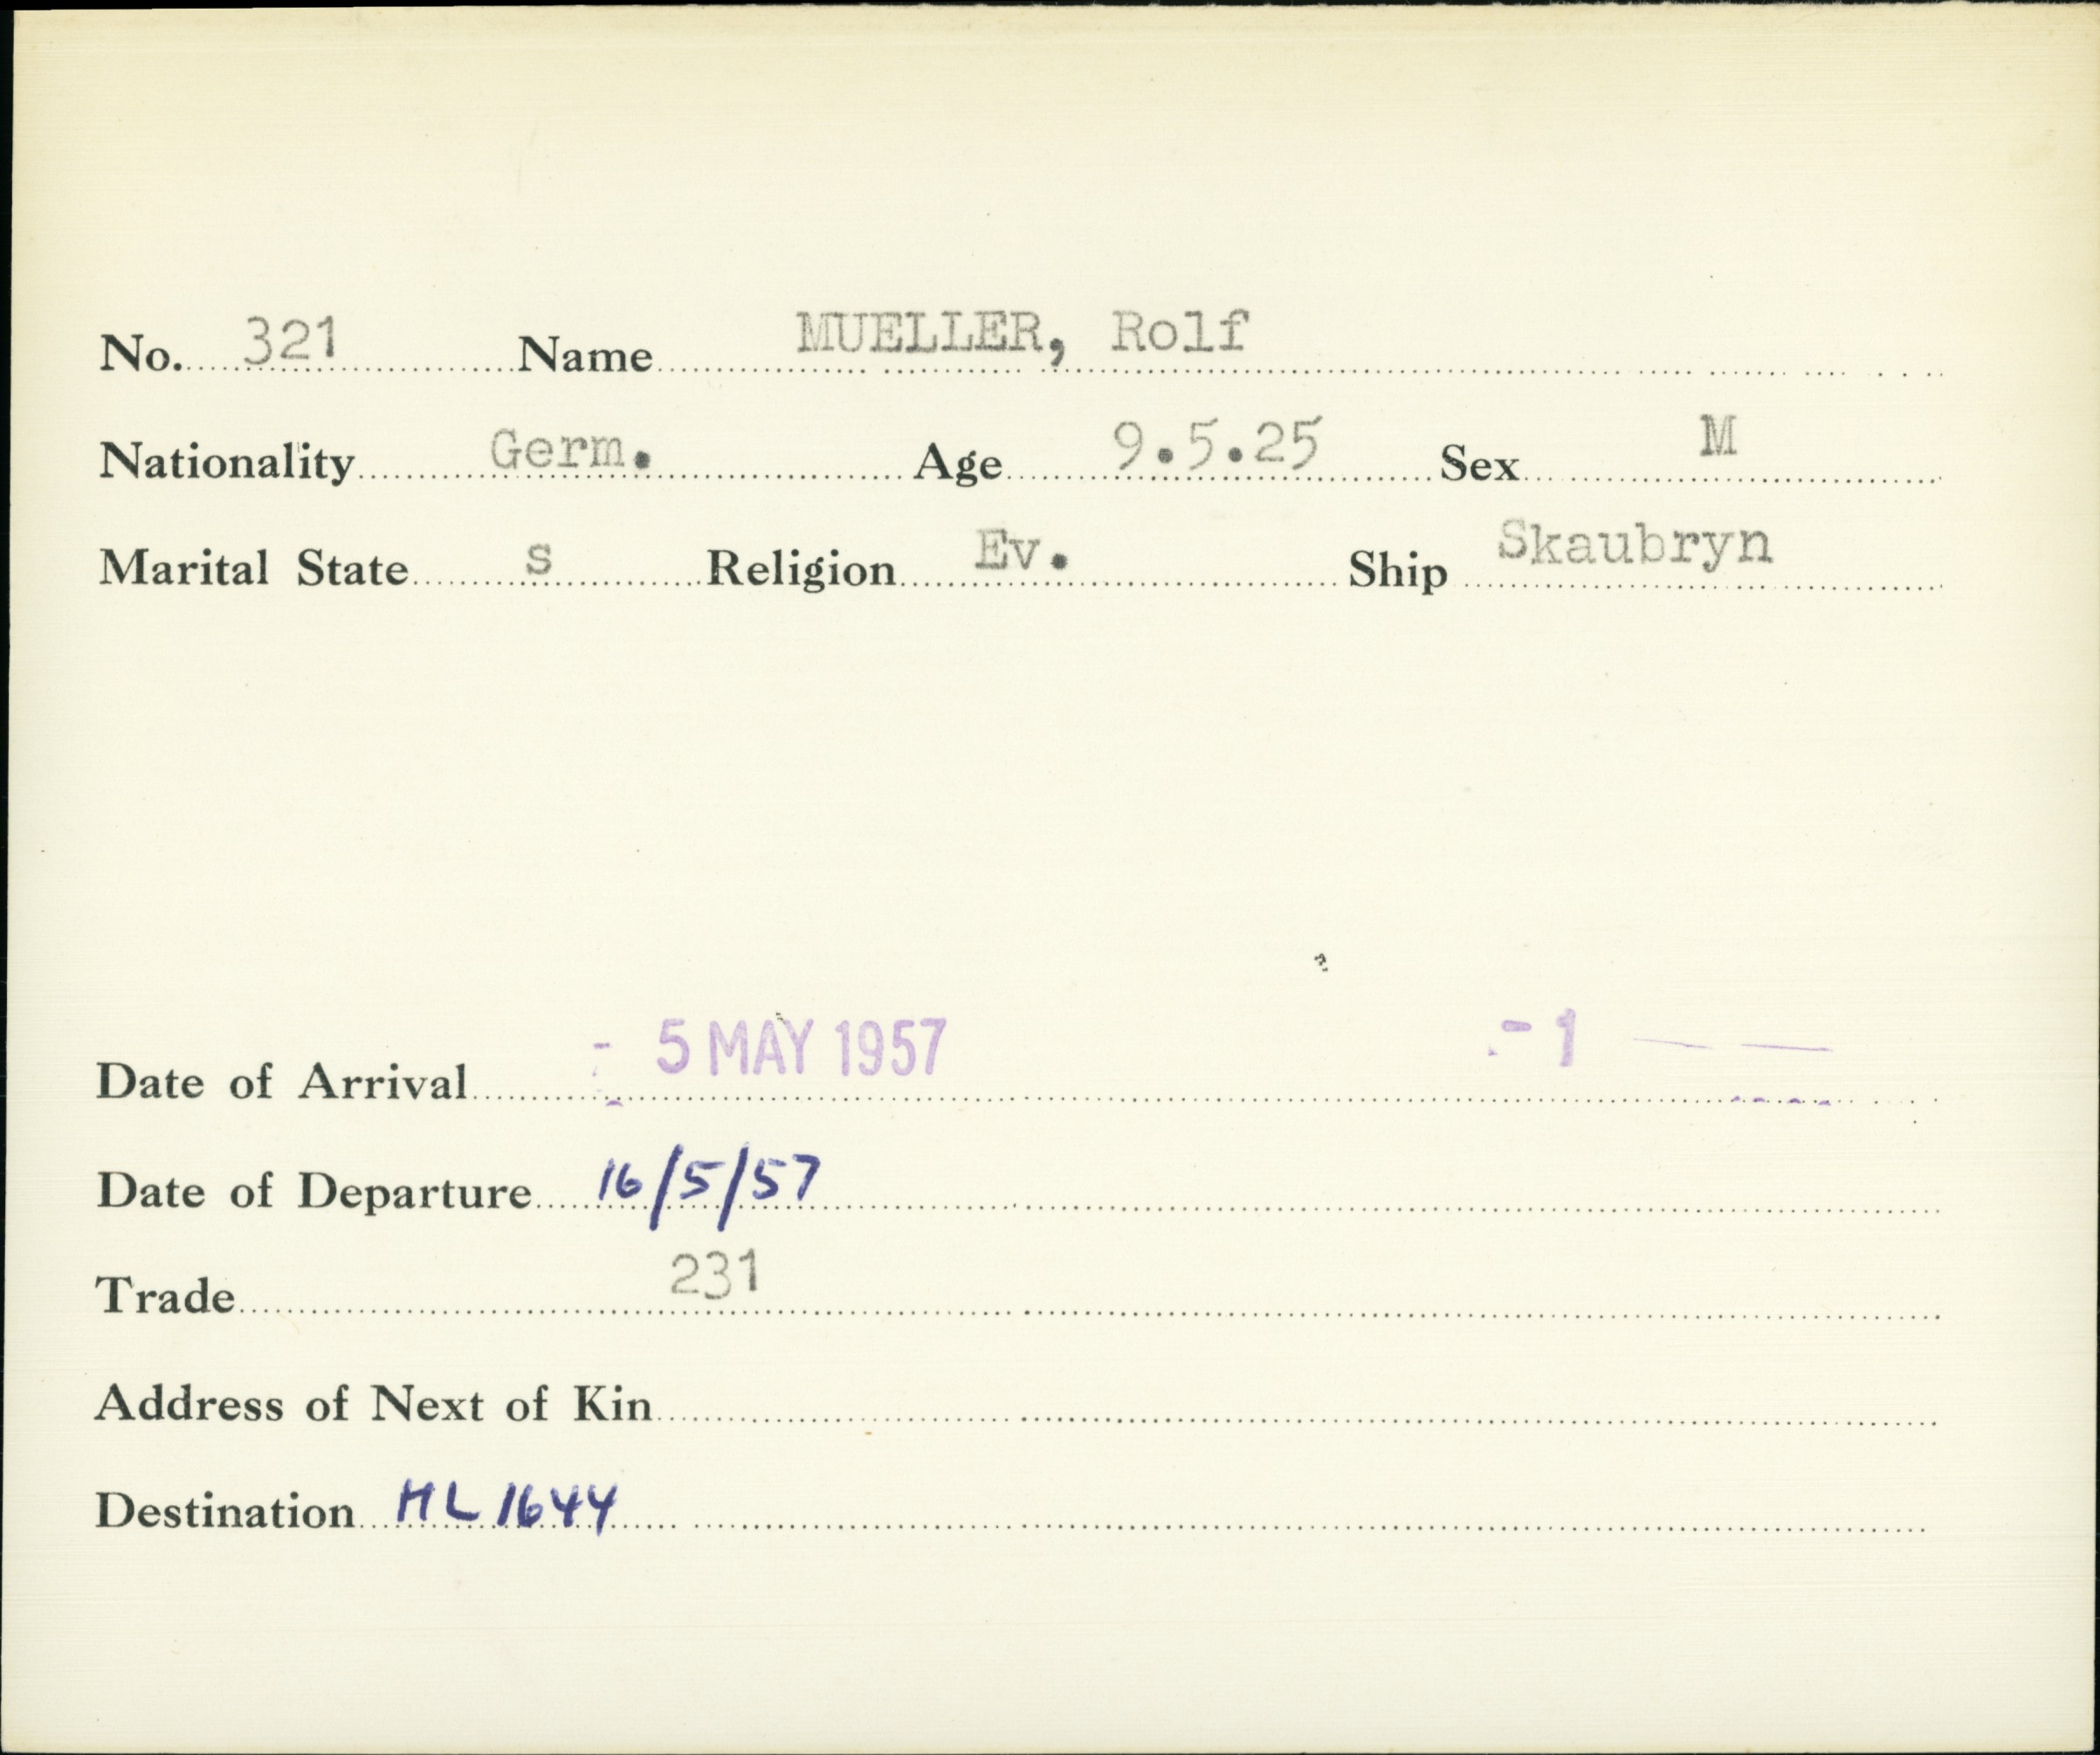 No. 321 Name MUELLER, Rolf
Nationality Germ. Age 9.5.25 Sex M
Marital State s Religion Ev. Ship Skaubryn
Date of Arrival - 5 MAY 1957 - 1
Date of Departure 16/5/57
Trade 231
Address of Next of Kin
Destination HL 1644